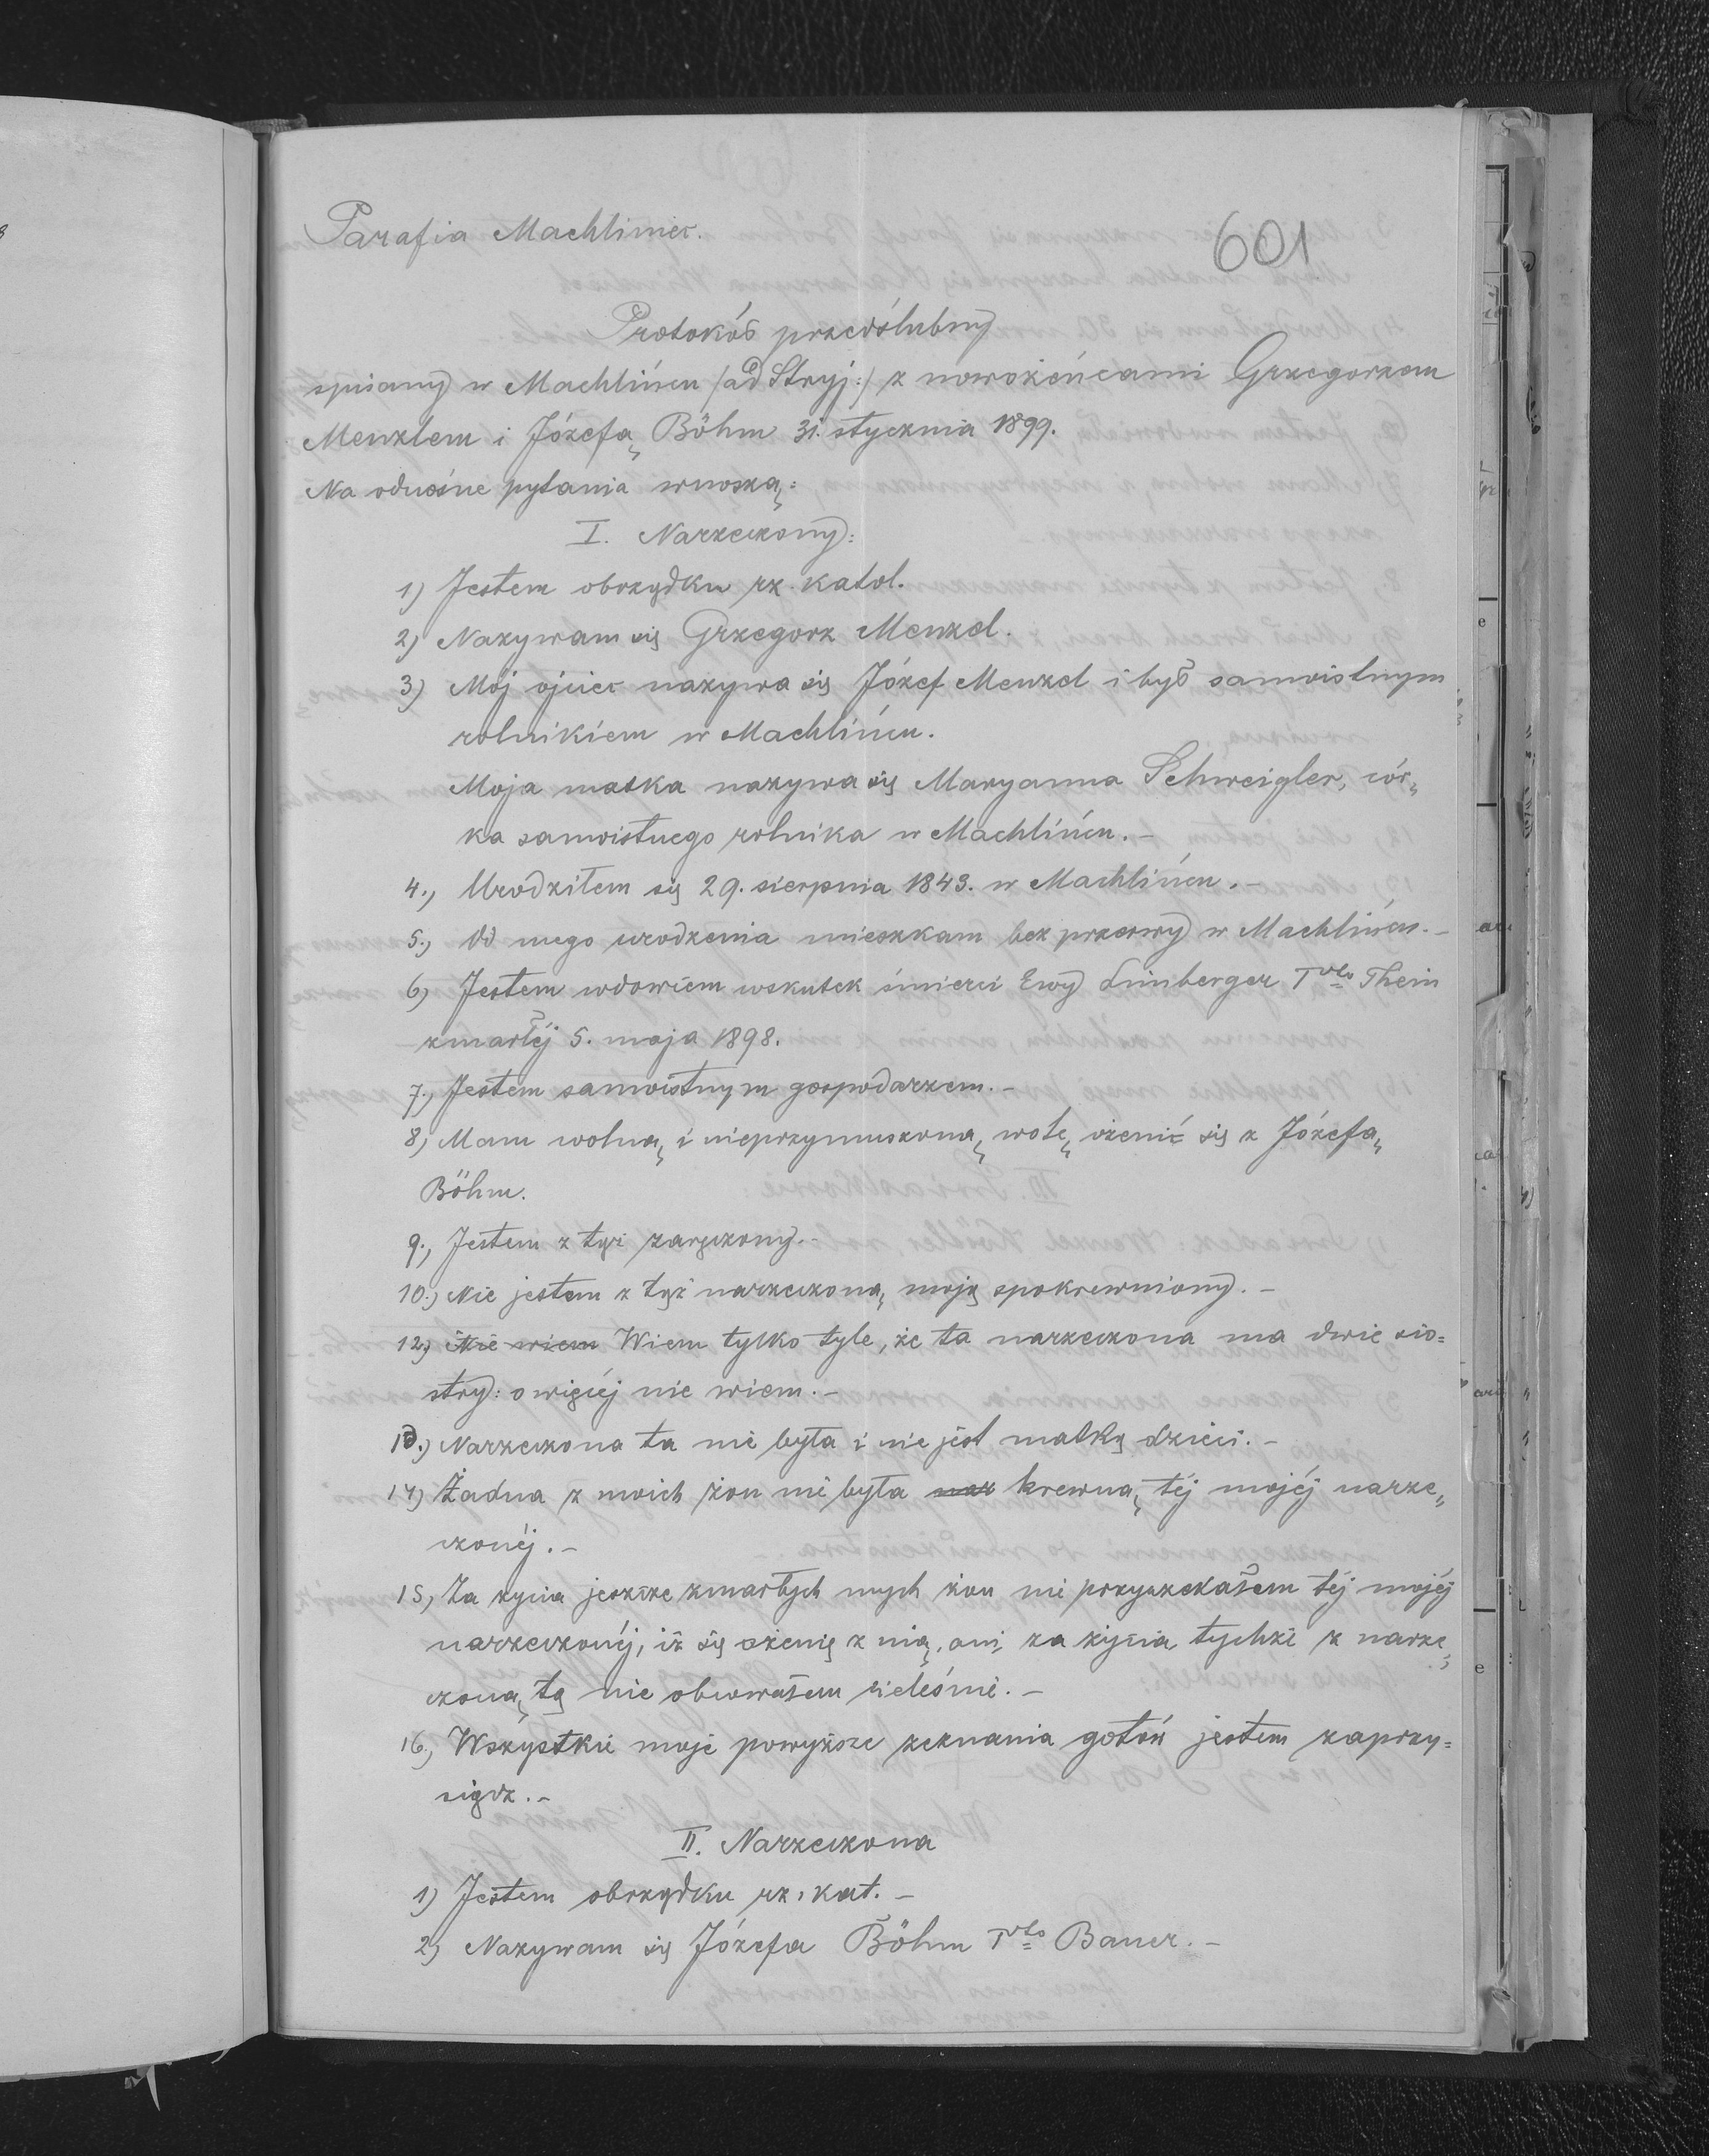 Parafia Machliniec.
601
Protokół przedślubny
spisany w Machlińcu /ad Stryj:/ z nowożeńcami Grzegorzem
Menzlem i Józefą Böhm 31. stycznia 1899.
Na odnośne pytania wnoszą:
I. Narzeczony:
1) Jestem obrządku rz. katol.
2) Nazywam się Grzegorz Menzel.
3) Mój ojciec nazywa się Józef Menzel i był samoistnym
rolnikiem w Machlińcu.
Moja matka nazywa się Maryanna Schweigler, cór„
ka samoistnego rolnika w Machlińcu.-
4., Urodziłem się 29. sierpnia 1843. w Machlińcu.-
5., Od mego urodzenia mieszkam bez przerwy w Machlińcu.-
6) Jestem wdowcem wskutek śmierci Ewy Linberger Ivto Thein
zmarłej 5. maja 1898.
7., Jestem samoistnym gospodarzem.-
8) Mam wolną i nieprzymuszoną wolę ożenić się z Józefą
Böhm.
9., Jestem z tąż zaręczony.-
10.) Nie jestem z tąż narzeczoną moją spokrewniony.-
12) Nie wiem Wiem tylko tyle, że ta narzeczona ma dwie sio=
stry: o więcej nie wiem.-
13.) Narzeczona ta nie była i nie jest matką dzieci.-
14) Żadna z moich żon nie była krewną téj mojéj narze„
czonéj.-
15, Za życia jeszcze zmarłych mych żon nie przyrzekałem téj mojéj
narzeczonéj, iż się ożenię z nią, ani za życia tychże z narze„
czoną tą nie obcowałem cieleśnie.-
16., Wszystkie moje powyższe zeznania gotów jestem zaprzy=
siądz.-
II. Narzeczona
1) Jestem obrządku rz. kat.-
2) Nazywam się Józefa Böhm Ivto Bauer.-